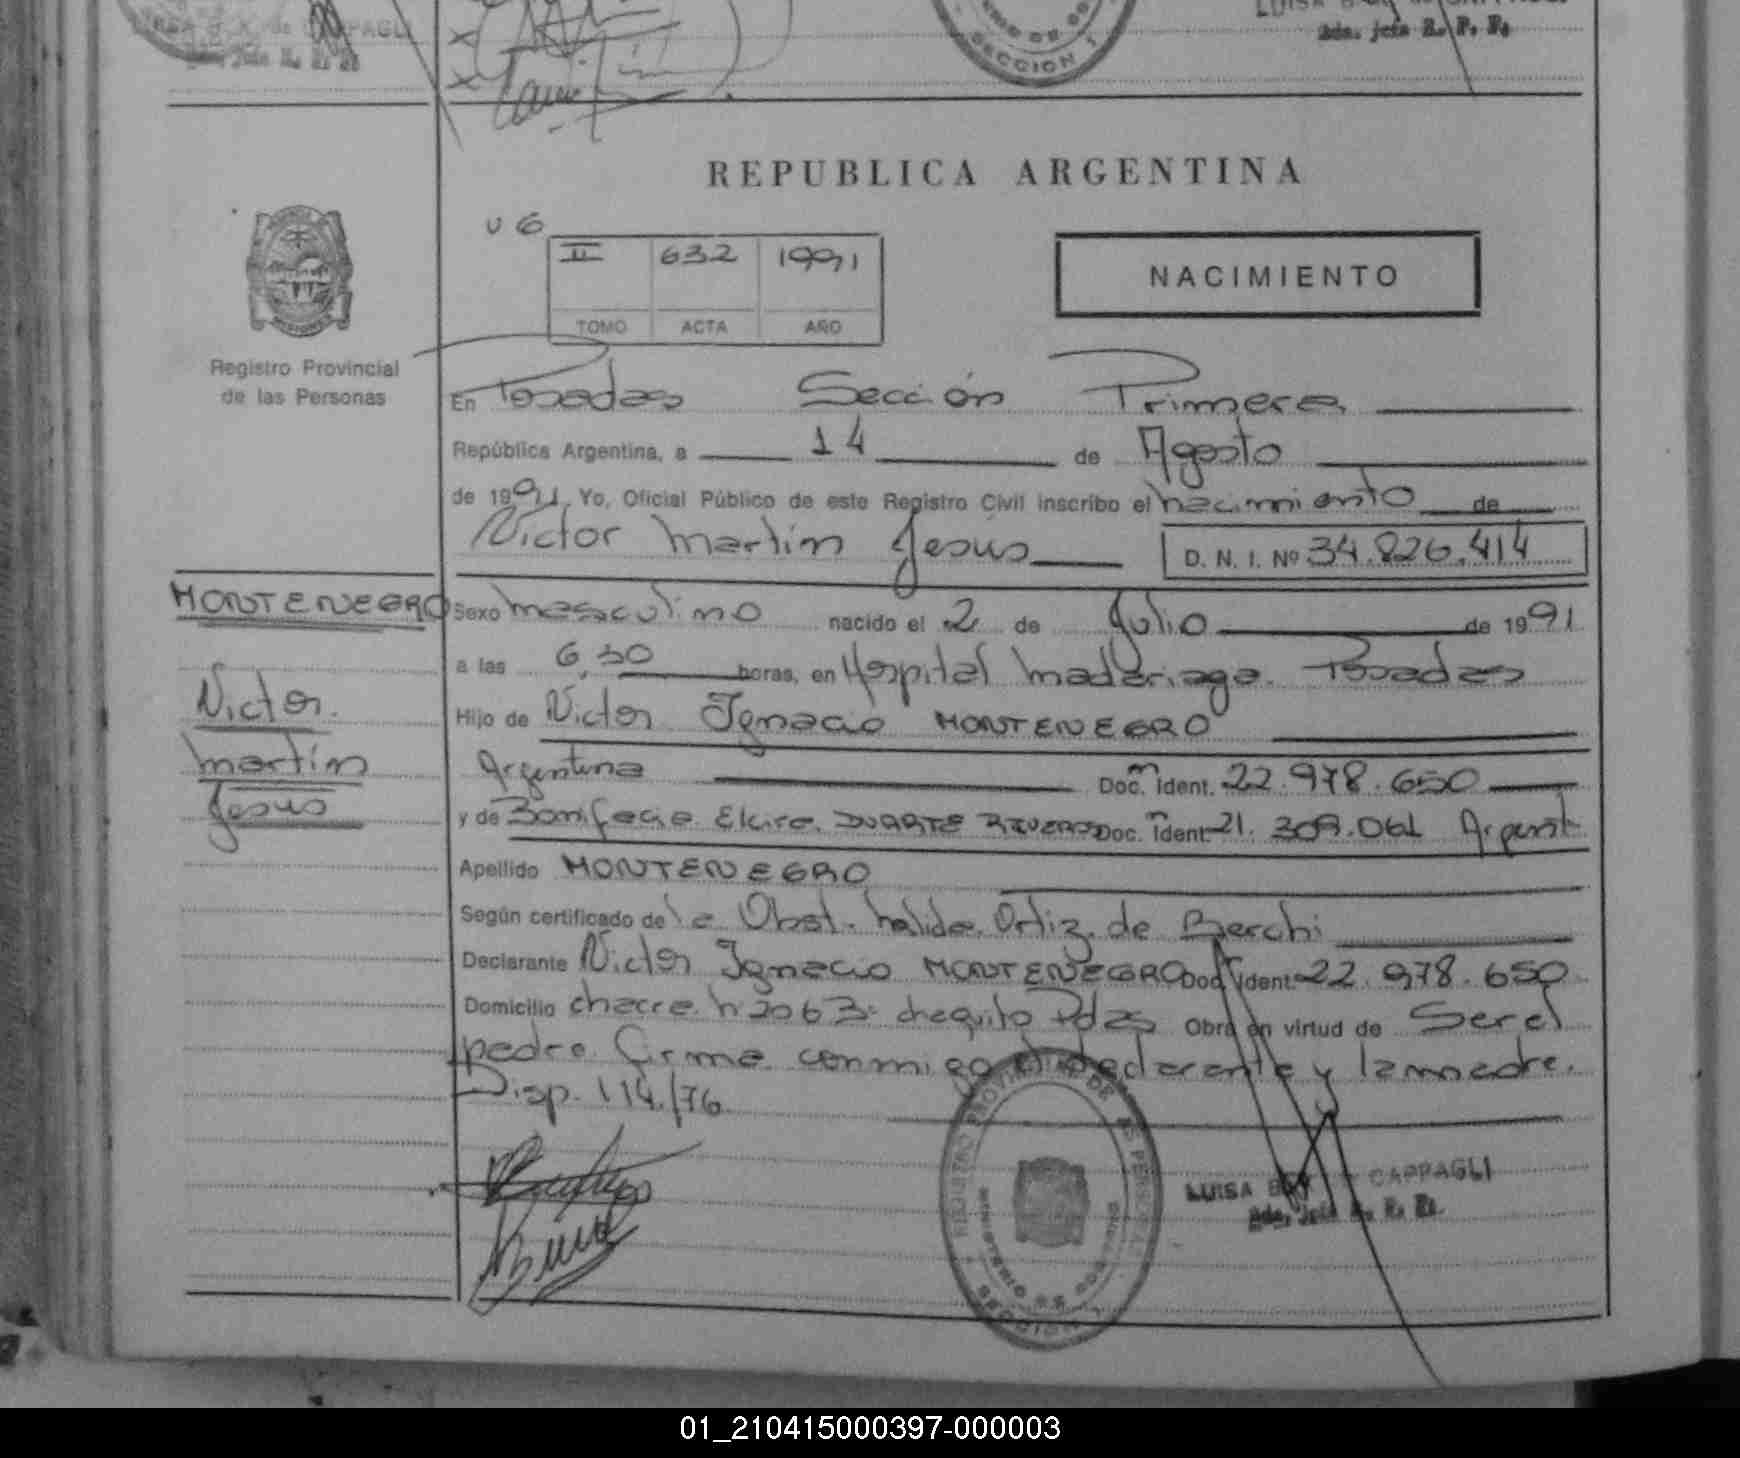 LUISA
CAPPAGLI
2da. jefa R. P. P.
SECCION 1
REPUBLICA ARGENTINA
U 6
II 632 1991
TOMO ACTA AÑO
NACIMIENTO
Registro Provincial
de las Personas
En Posadas Sección Primera
República Argentina, a 14 de Agosto
de 1991, Yo, Oficial Público de este Registro Civil inscribo el nacimiento de
Victor Martín Jesús D. N. I. Nº 34.826.414
MONTENEGRO
Victor
Martín
Jesús
Sexo masculino nacido el 2 de Julio de 1991
a las 6,30 horas, en Hospital Madariaga. Posadas
Hijo de Victor Ignacio MONTENEGRO
Argentina Doc. m Ident. 22.978.650
y de Bonifacia Elvira DUARTE RIVEROS Doc. m Ident. 21.309.061 Argent
Apellido MONTENEGRO
Según certificado de la Obst. Nalida Ortiz de Berchi
Declarante Victor Ignacio MONTENEGRO Doc. Ident. 22.978.650
Domicilio chacra n 2063 chaquito Pdas Obra en virtud de Ser el
padre. Firma conmigo el declarante y la madre.
Disp. 114/76
REGISTRO PROVINCIAL DE LAS PERSONAS
MINISTERIO DE GOBIERNO
SECCION 1
LUISA B CAPPAGLI
2da. jefa R. P. P.
01_210415000397-000003